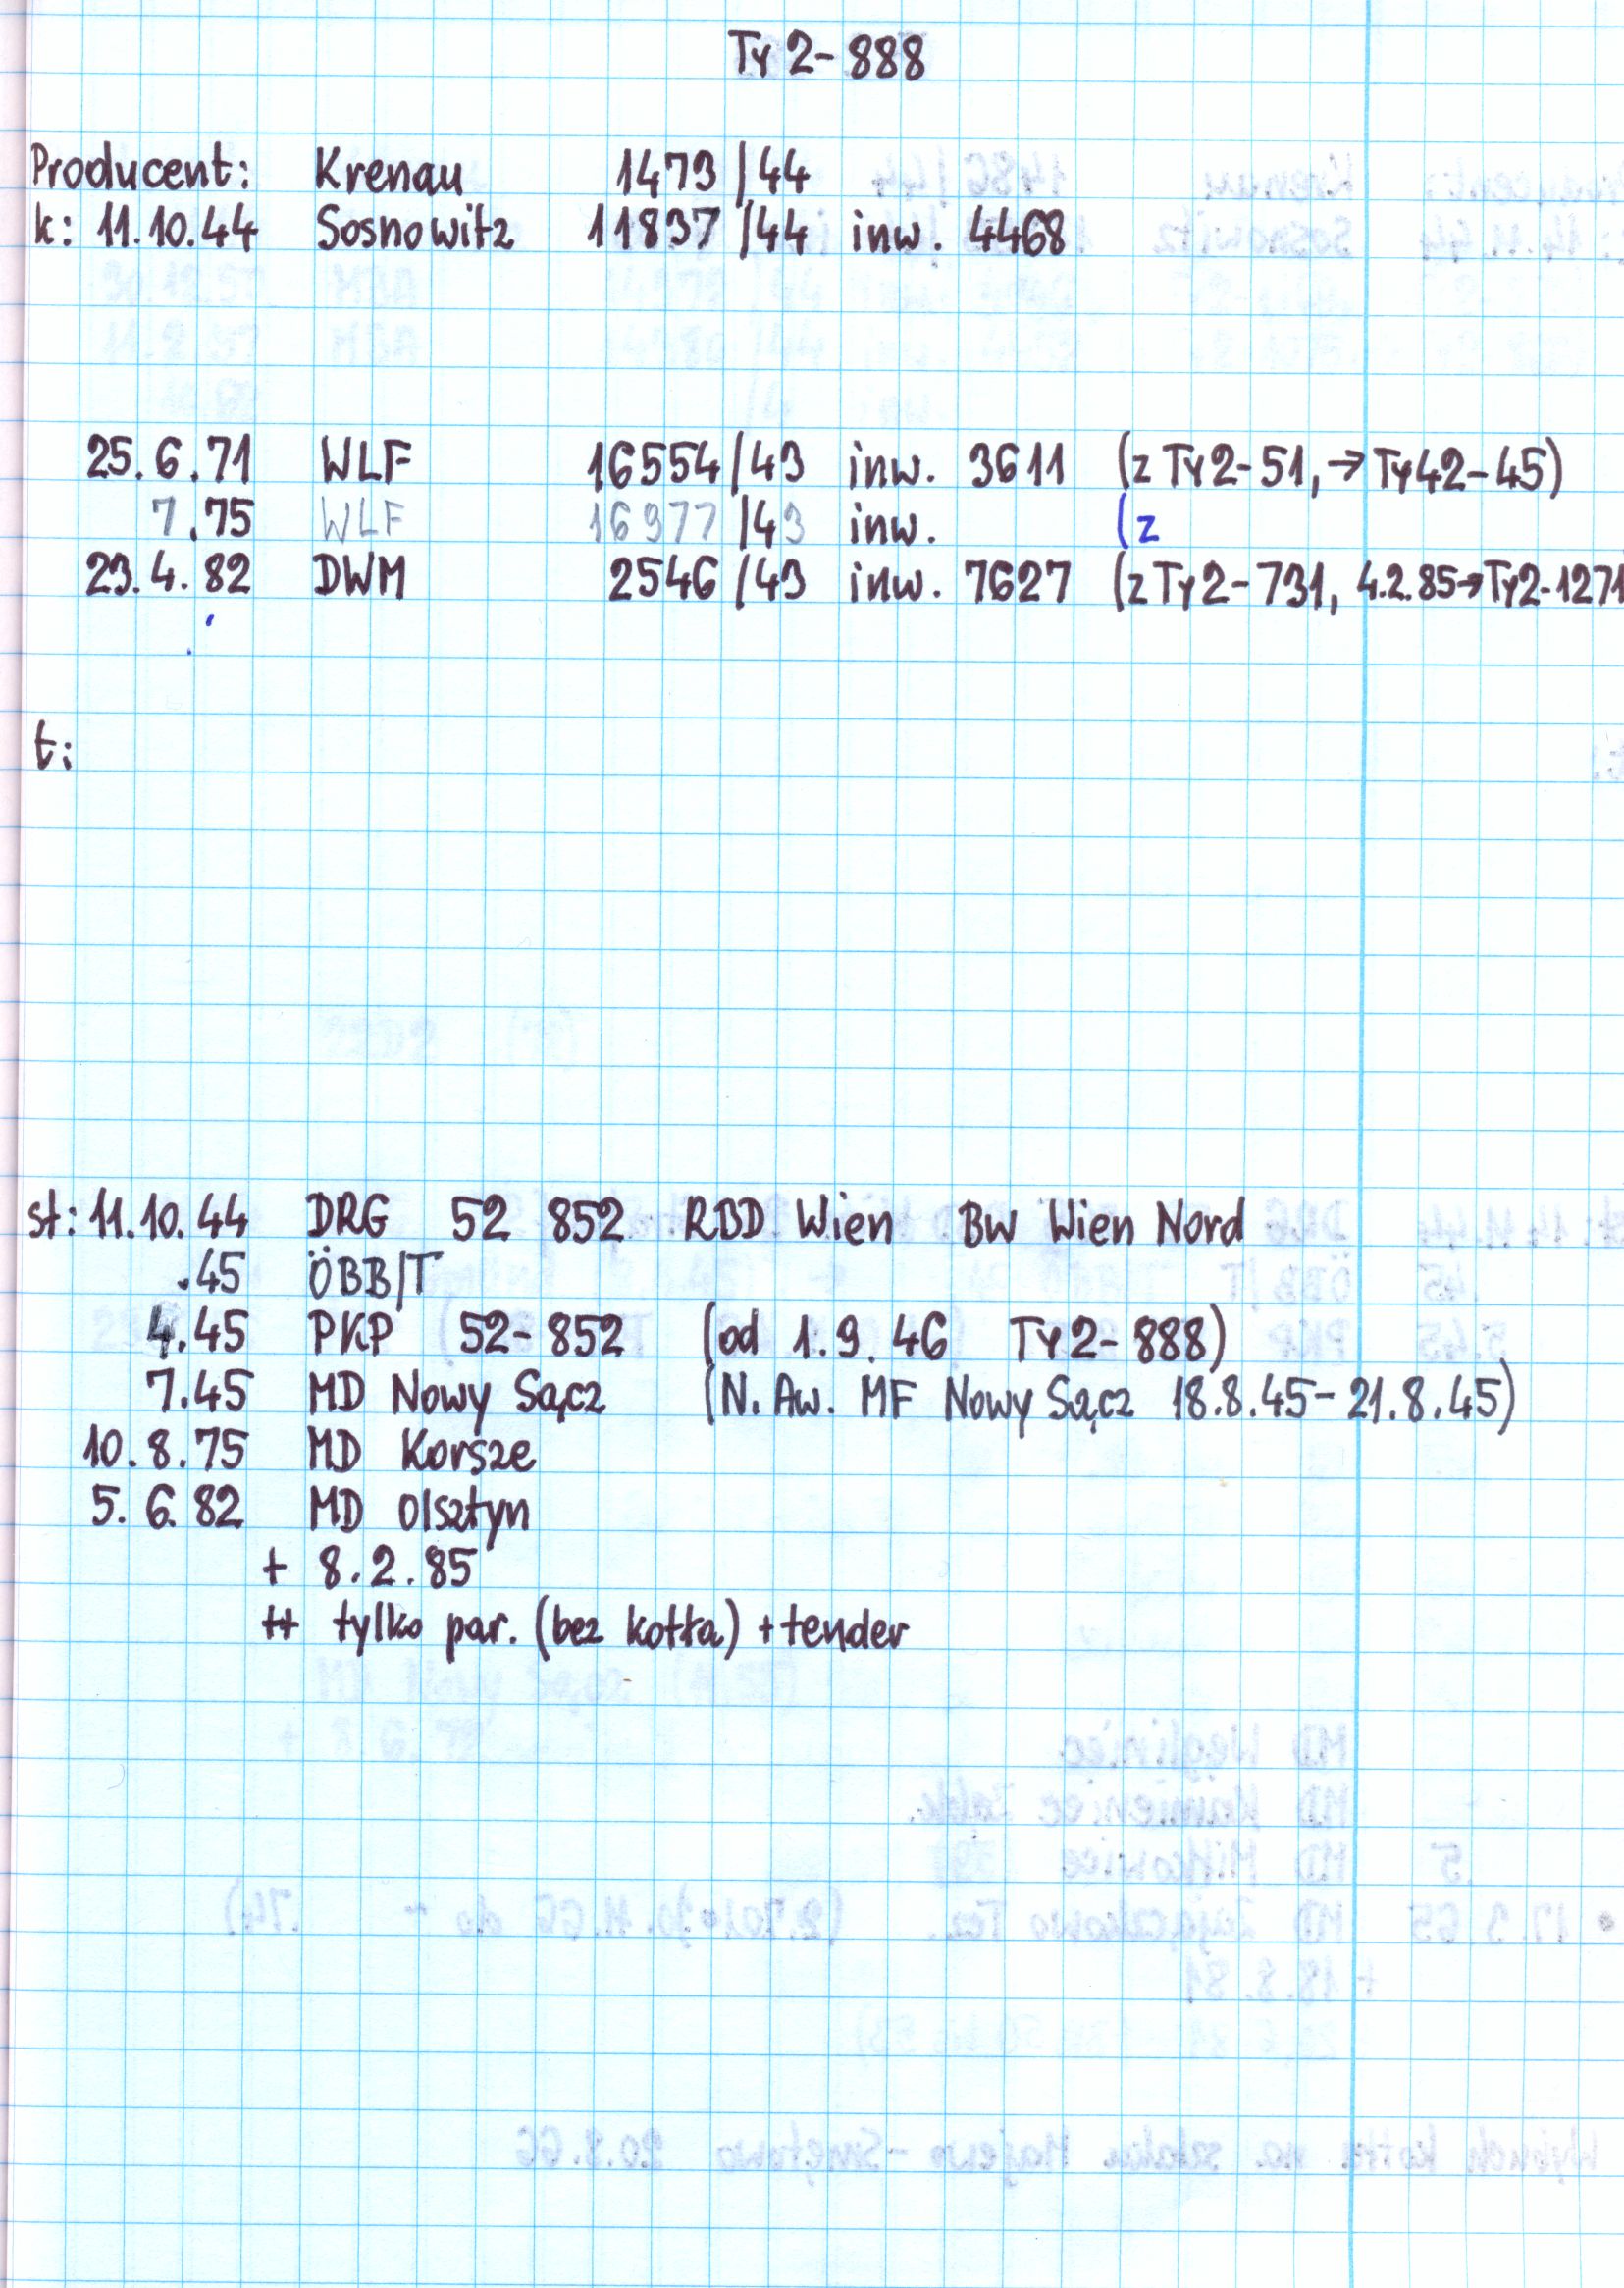 Ty2-888
Producent: Krenau 1473/44
k: 11.10.44 Sosnowitz 11837/44 inw. 4468
25.6.71 WLF 16554/43 inw. 3611 (z Ty2-51, → Ty42-45)
7.75 WLF 16977/43 inw. (z
23.4.82 DWM 2546/43 inw. 7627 (z Ty2-731, 4.2.85→Ty2-1271
t:
st: 11.10.44 DRG 52 852 RBD Wien Bw Wien Nord
.45 ÖBB/T
4.45 PKP 52-852 (od 1.9.46 Ty2-888)
7.45 MD Nowy Sącz (N. Aw. MF Nowy Sącz 18.8.45-21.8.45)
10.8.75 MD Korsze
5.6.82 MD Olsztyn
+ 8.2.85
++ tylko par. (bez kotła) + tender